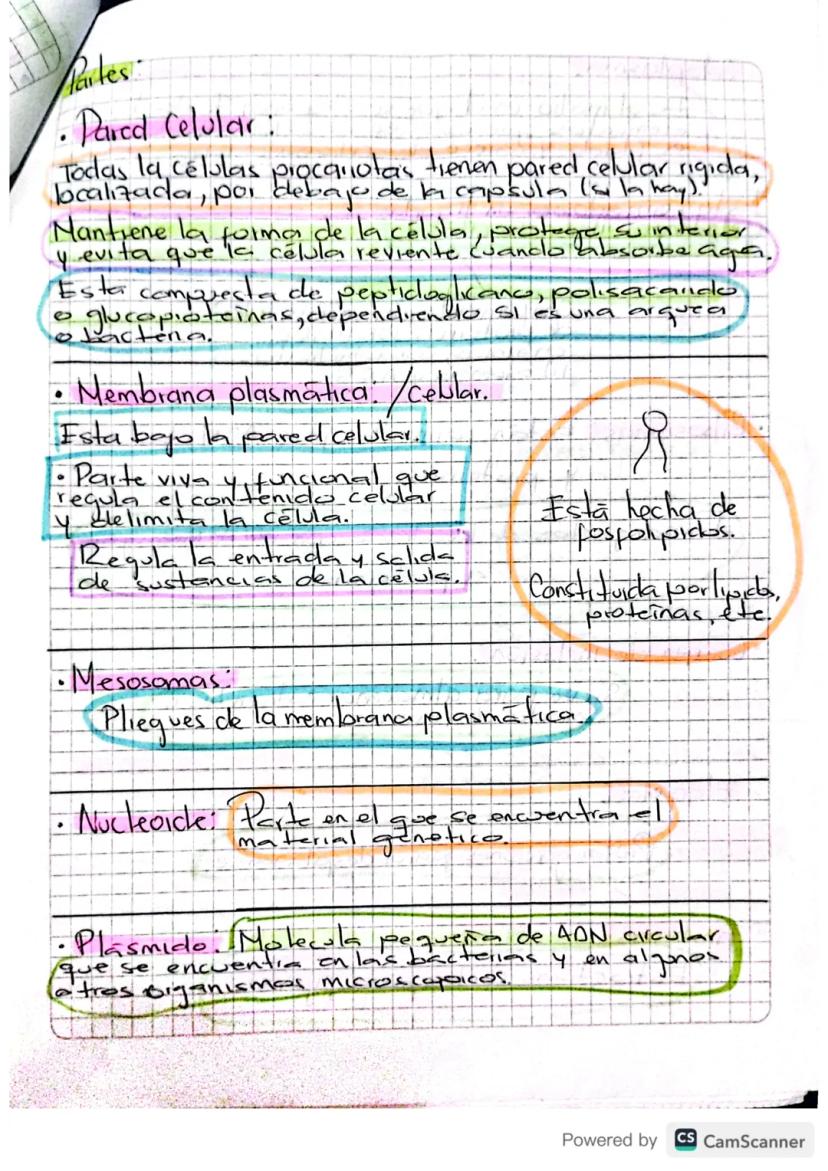 Partes:
· Pared Celular:
Todas la células procariotas tienen pared celular rigida,
localizada, por debajo de la capsula (si la hay).
Mantiene la forma de la célula, protege su interior
y evita que la célula reviente cuando absorbe agua.
Esta compuesta de peptidoglicano, polisacarido
o glucoproteínas, dependiendo si es una arquea
o bacteria.
· Membrana plasmática: /celular.
Esta bajo la pared celular.
· Parte viva y funcional que
regula el contenido celular
y delimita la célula.
Regula la entrada y salida
de sustancias de la célula.
Está hecha de
fosfolipidos.
Constituida por lipidos,
proteínas, etc.
· Mesosomas:
Pliegues de la membrana plasmática.
· Nucleoide: Parte en el que se encuentra el
material genetico.
· Plásmido: Molecula pequeña de ADN circular
que se encuentra en las bacterias y en algunos
otros organismos microscopicos.
Powered by CS CamScanner